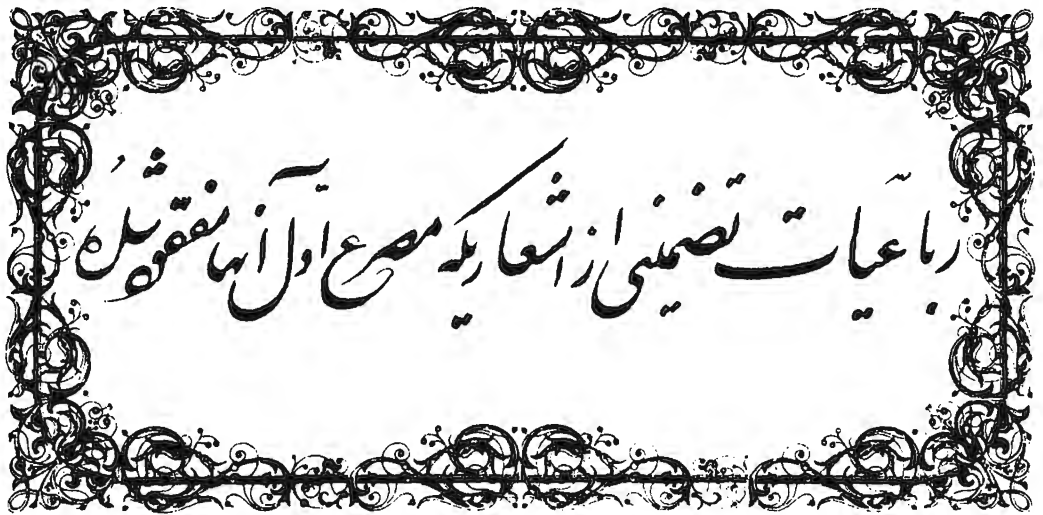 رباعیّات تضمینی از اشعاریکه مصرع اول آنها مفقود شُده